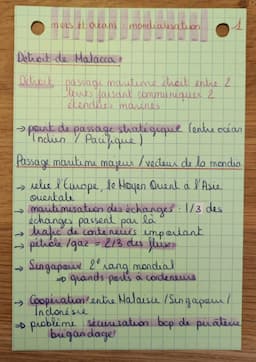 mers et océans : mondialisation 1
Détroit de Malacca :
Détroit : passage maritime étroit entre 2
terres faisant communiquer 2
étendues marines
→ point de passage stratégique (entre océan
Indien / Pacifique)
Passage maritime majeur / vecteur de la mondia
→ relie l'Europe, le Moyen Orient à l'Asie
orientale
→ maritimisation des échanges : 1/3 des
échanges passent par là
→ trafic de conteneurs important
→ pétrole / gaz = 2/3 des flux
→ Singapour 2e rang mondial
⇒ grands ports à conteneurs
→ Coopération entre Malaisie / Singapour /
Indonésie
⇒ problème : sécurisation bcp de piraterie
brigandage